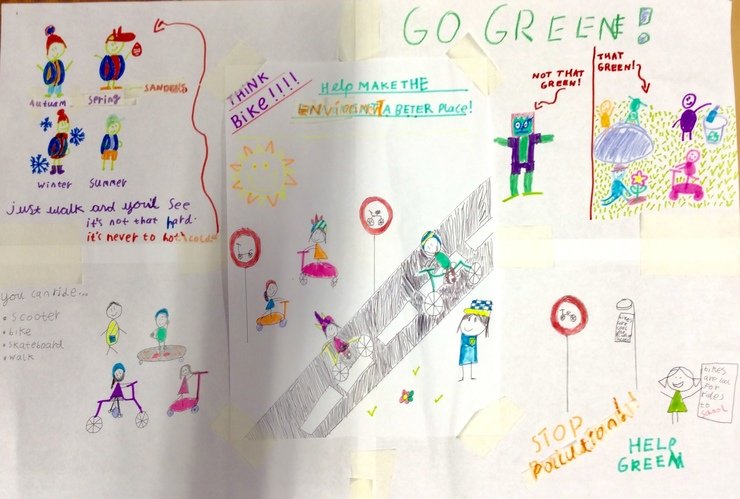 GO GREEN!
Autuem Spring SANDER'S
Winter Summer
just walk and you'll See
it's not that hard.
it's never to hot\cold
THINK
BiKe!!!!
Help MAKE THE
ENVIROMENT A BETER PlACe!
NOT THAT
GREEN!
THAT
GREEN!
you can ride...
• scooter
• bike
• skateboard
• walk
STOP
Pollution!!
HELP
GREEN
bikes
are cool
for
rides
to
School